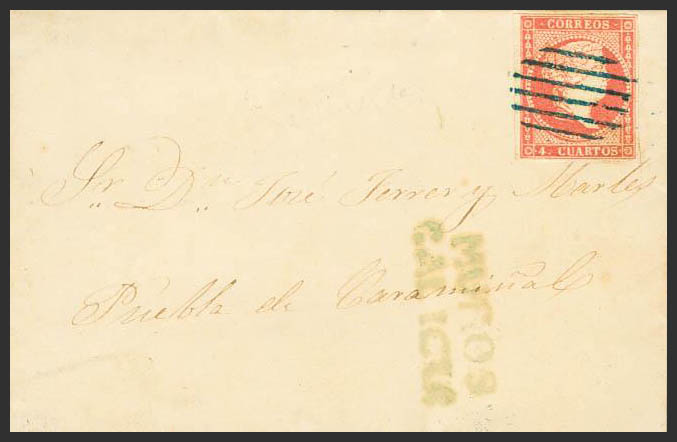 CORREOS
4. CUARTOS
Sr. Dn. José Ferrer y Martes
Puebla de Caramiñal
MUTOS
GALICIA